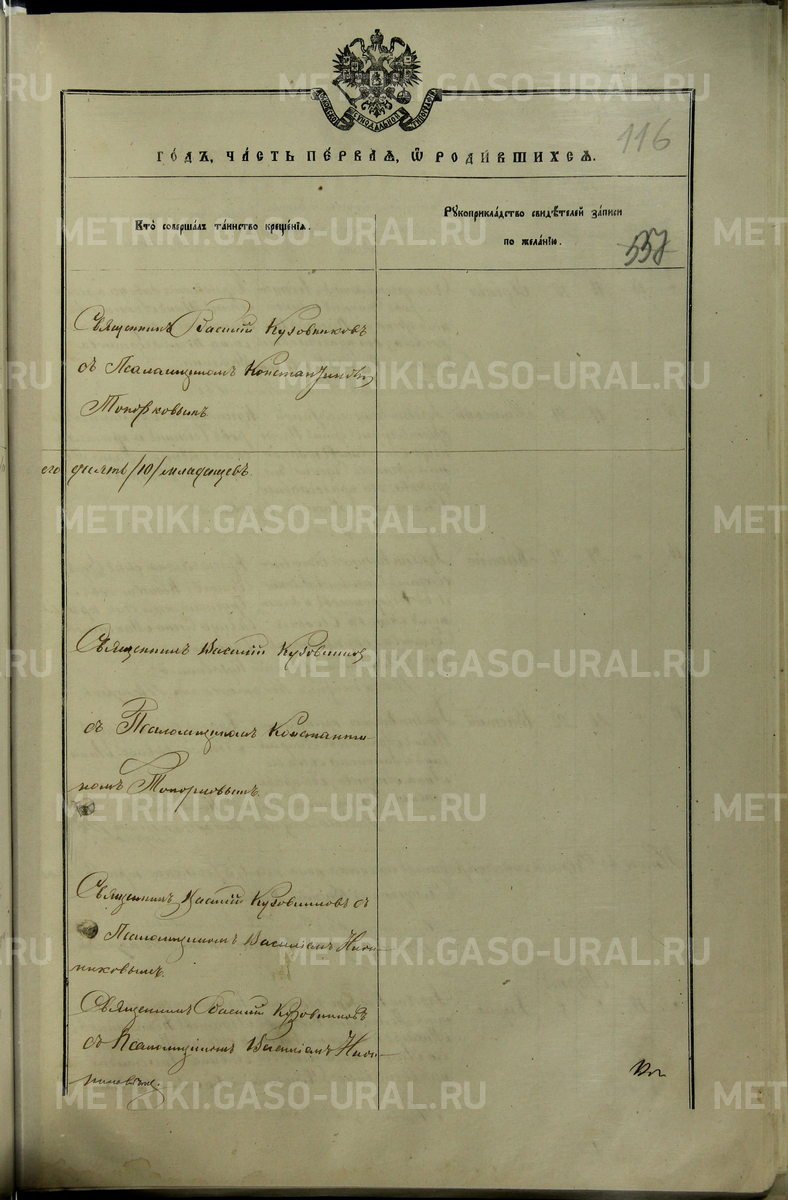 METRIKI.GASO-URAL.RU
СѴНОДАЛЬНОЙ
116
ГО́ДЪ, ЧА́СТЬ ПЕ́РВАѦ, Ѡ҆ РОДИ́ВШИХСѦ.
Кто̀ соверша́лъ та́инство креще́нїѧ.
Рꙋкоприкла́дство свидѣ́телей за́писи
по жела́нїю.
557
Священникъ Василій Кузовниковъ
съ Псаломщикомъ Константиномъ
Топорковымъ
его десять /10/ младенцевъ
Священникъ Василій Кузовников
съ Псаломщикомъ Константи-
номъ Топорковымъ.
Священникъ Василій Кузовниковъ съ
Псаломщикомъ Василіемъ
никовымъ.
Священникъ Василій Кузовниковъ
съ Псаломщикомъ Василіемъ